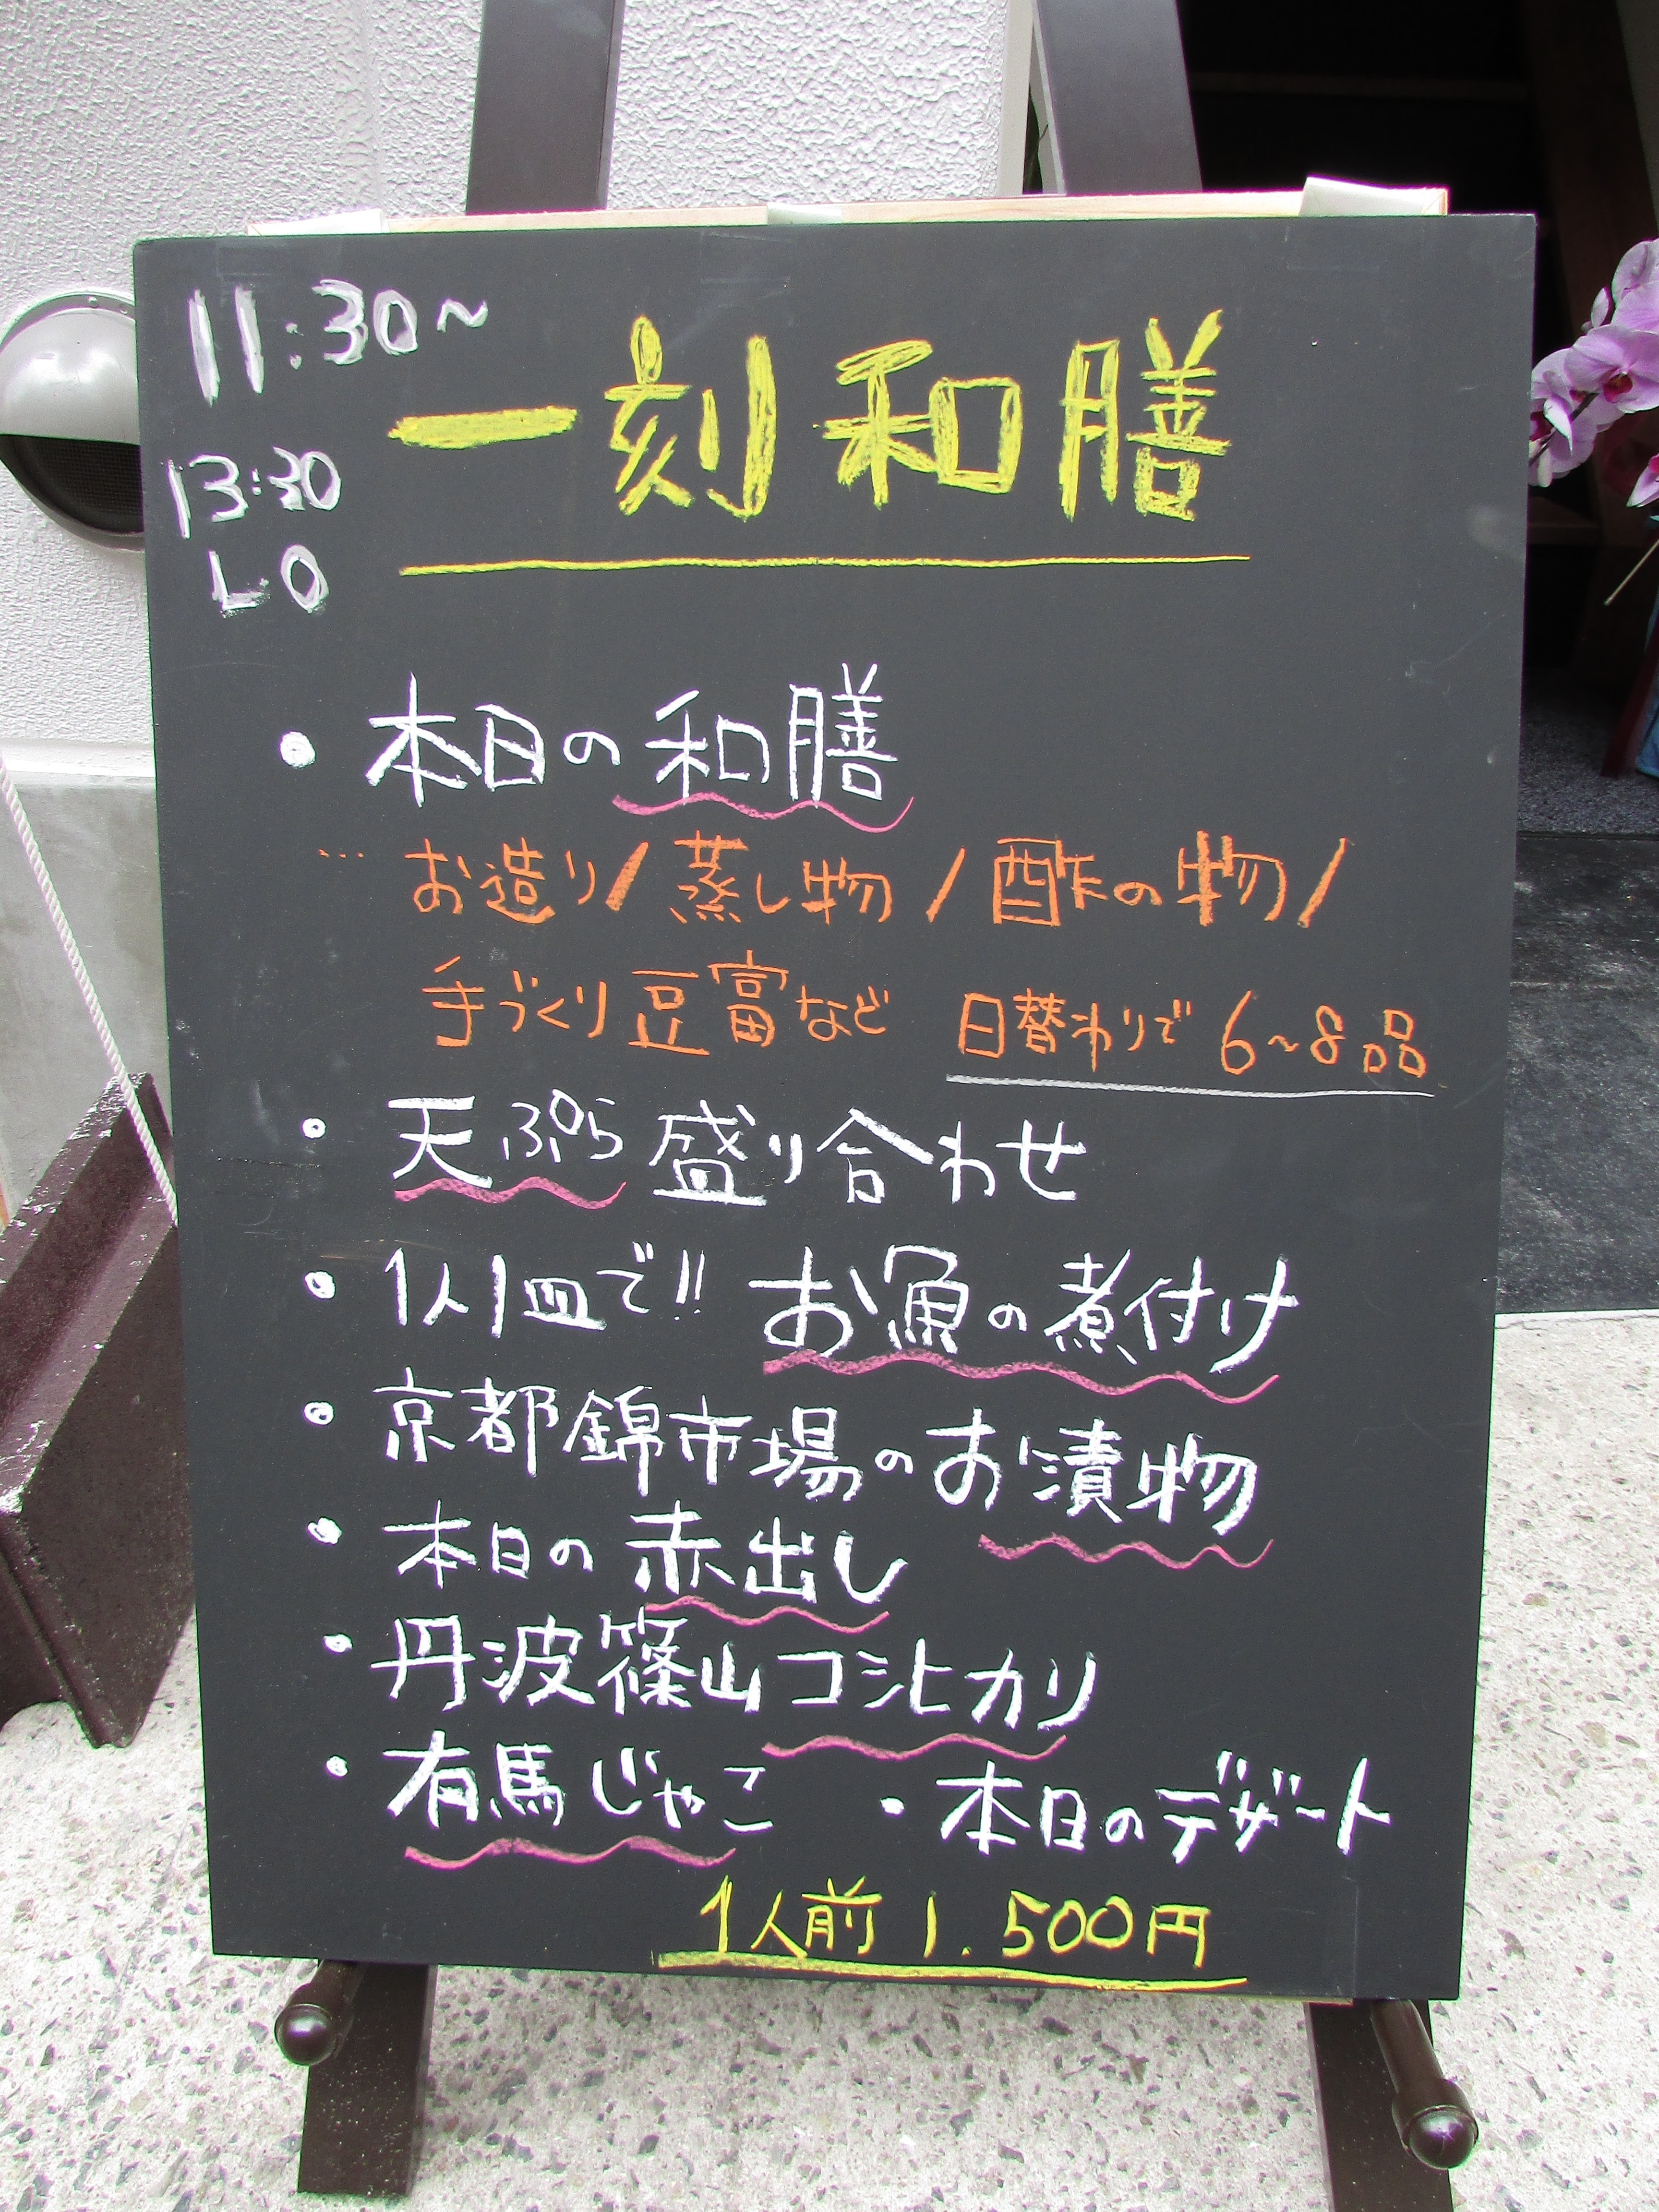 11:30~
一刻和膳
13:30
L.O
• 本日の和膳
… お造り/蒸し物/酢の物/
手づくり豆富など 日替わりで 6~8品
• 天ぷら盛り合わせ
• 1人1皿で!! お魚の煮付け
• 京都錦市場のお漬物
• 本日の赤出し
• 丹波篠山コシヒカリ
• 有馬じゃこ • 本日のデザート
1人前 1.500円